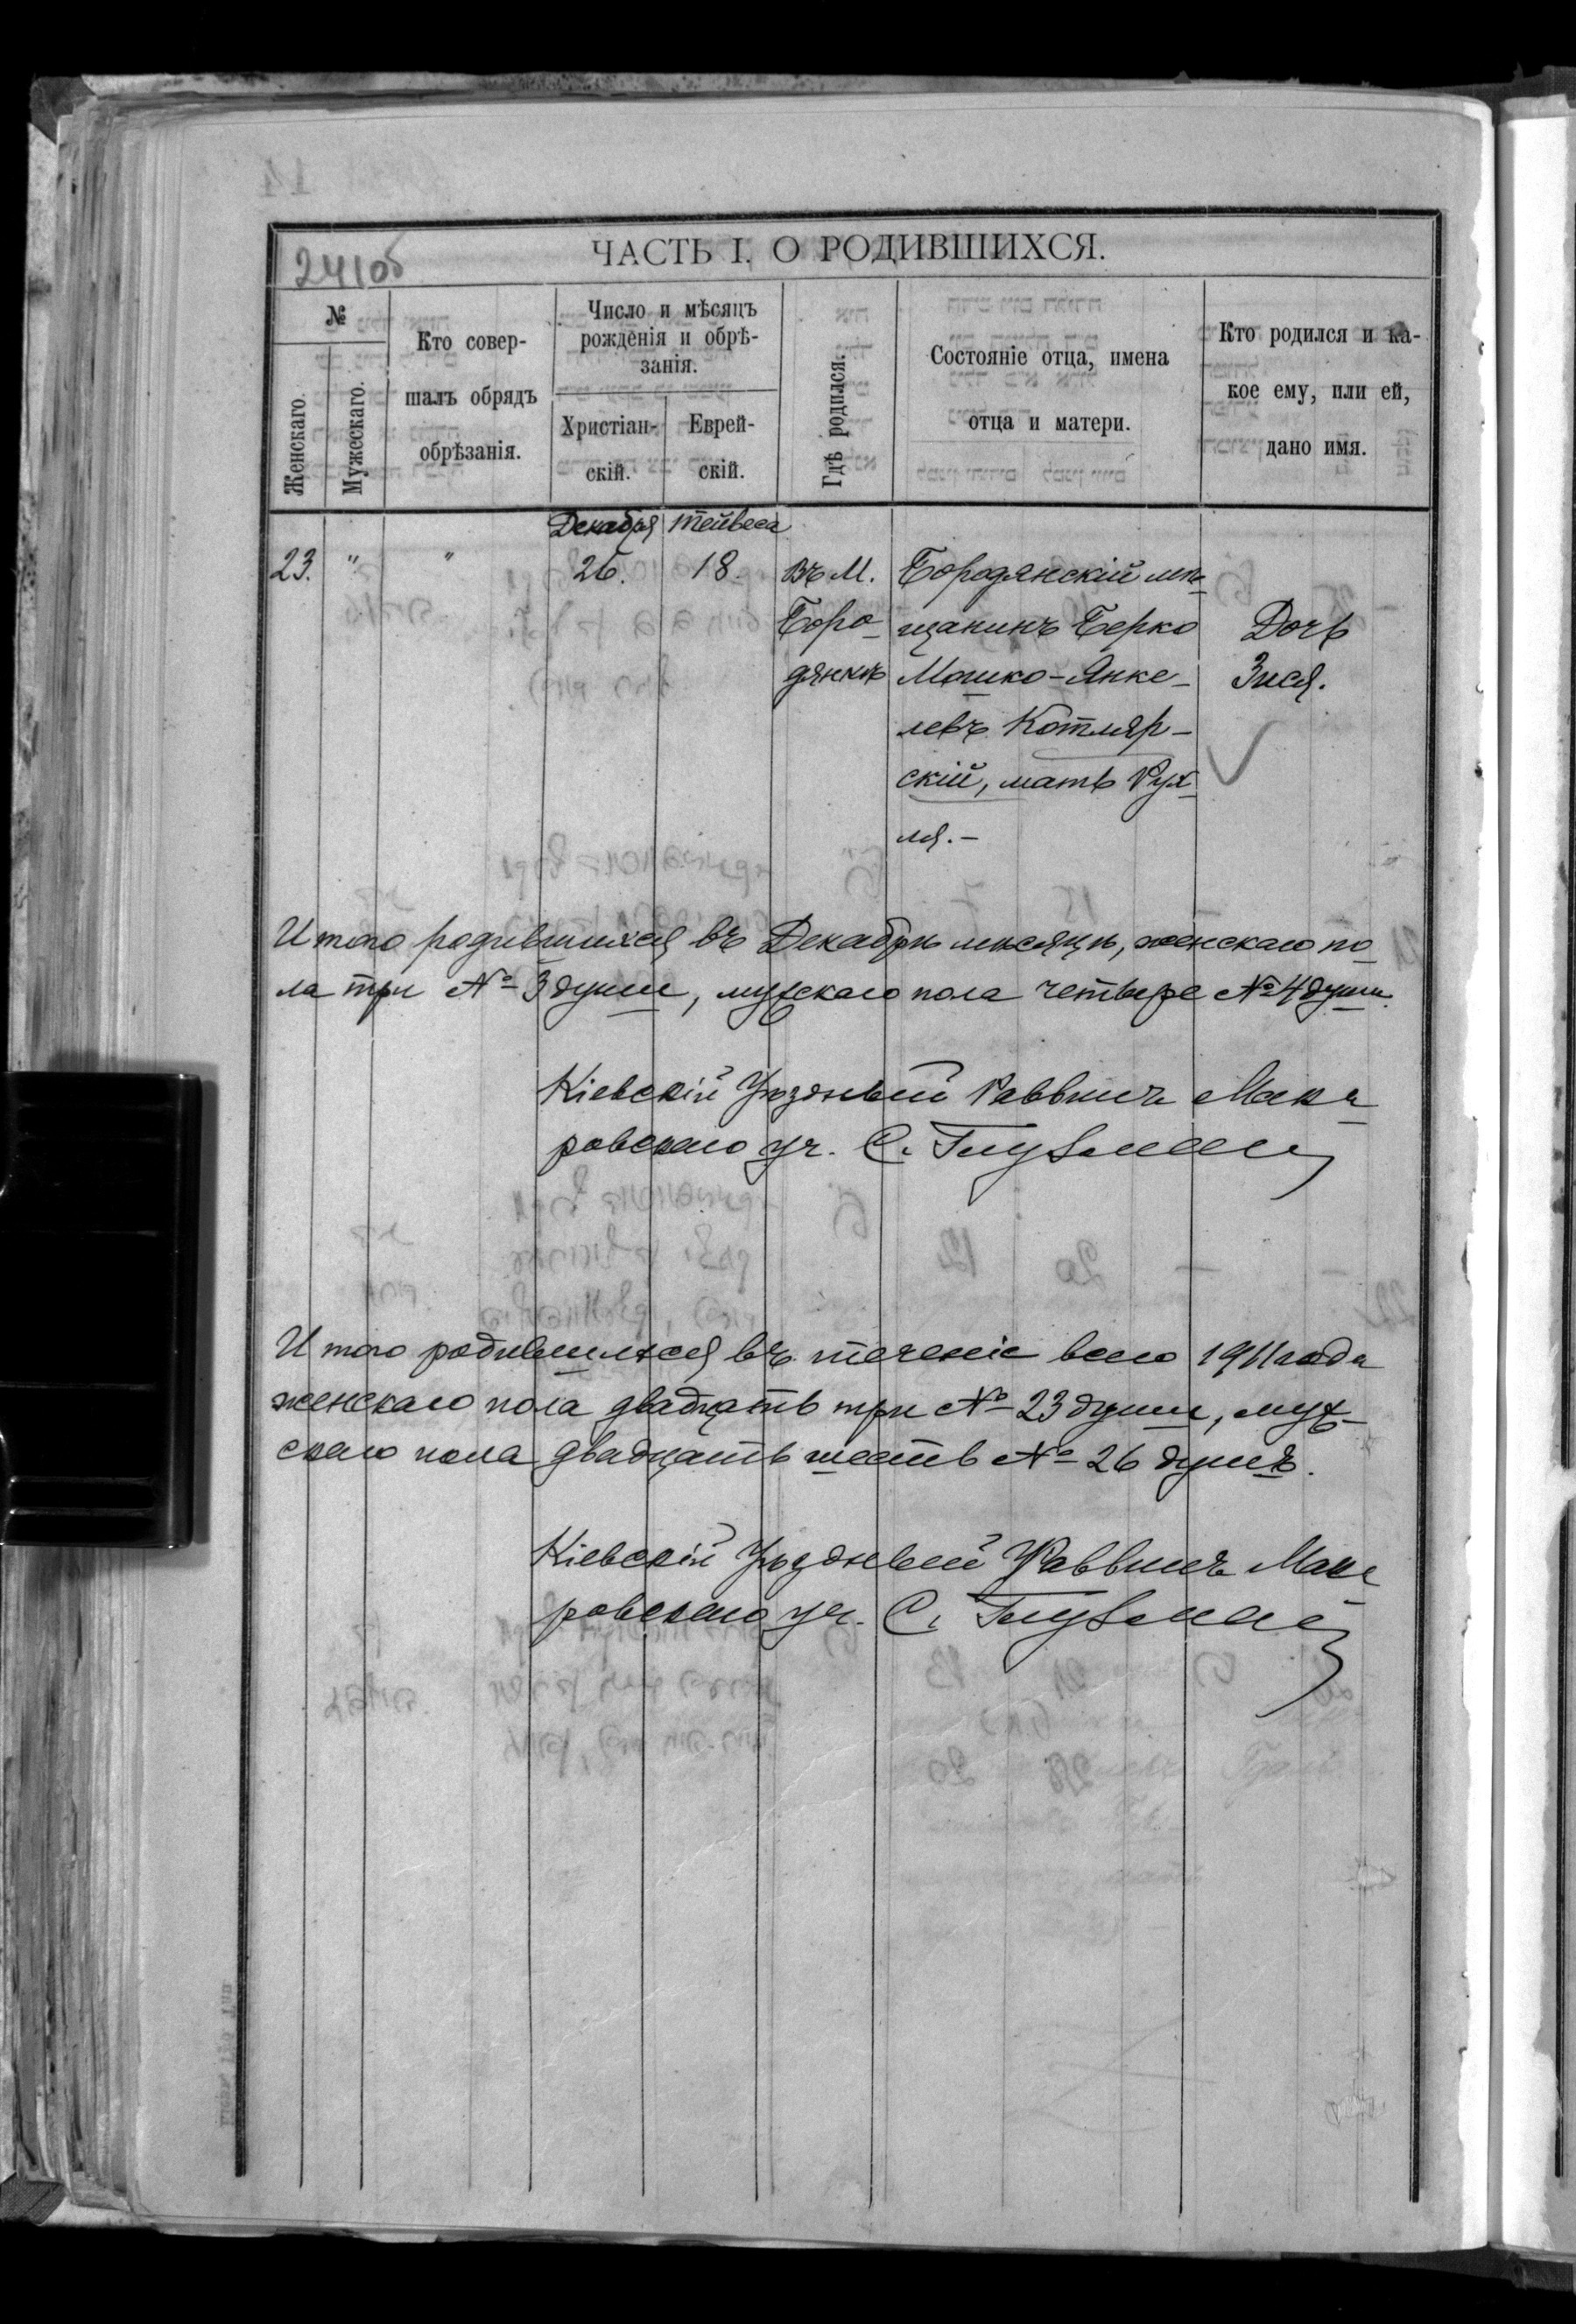 241об
ЧАСТЬ I. О РОДИВШИХСЯ.
№
Женскаго.
Мужескаго.
Кто совер-
шалъ обрядъ
обрѣзанія.
Число и мѣсяцъ
рожденія и обрѣ-
занія.
Христіан-
скій.
Еврей-
скій.
Гдѣ родился.
Состояніе отца, имена
отца и матери.
Кто родился и ка-
кое ему, или ей,
дано имя.
Декабря Тейвеса
23. " " 26. 18. Въ М. Бородянскій мѣ-
Боро- щанинъ Берко Дочь
дянкѣ Мошко-Янке- Зися.
левъ Котляр-
скій, мать Рух-
ля.-
Итого родившихся въ Декабрѣ мѣсяцѣ, женскаго по-
ла три № 3 души, мужскаго пола четыре № 4 души.
Кіевскій Уѣздный Раввинъ Мака-
ровскаго уч. С. Глузман
Итого родившихся въ теченіе всего 1911 года
женскаго пола двадцать три № 23 души, муж-
скаго пола двадцать шесть № 26 душъ.
Кіевскій Уѣздный Раввинъ Мака
ровскаго уч. С. Глузман